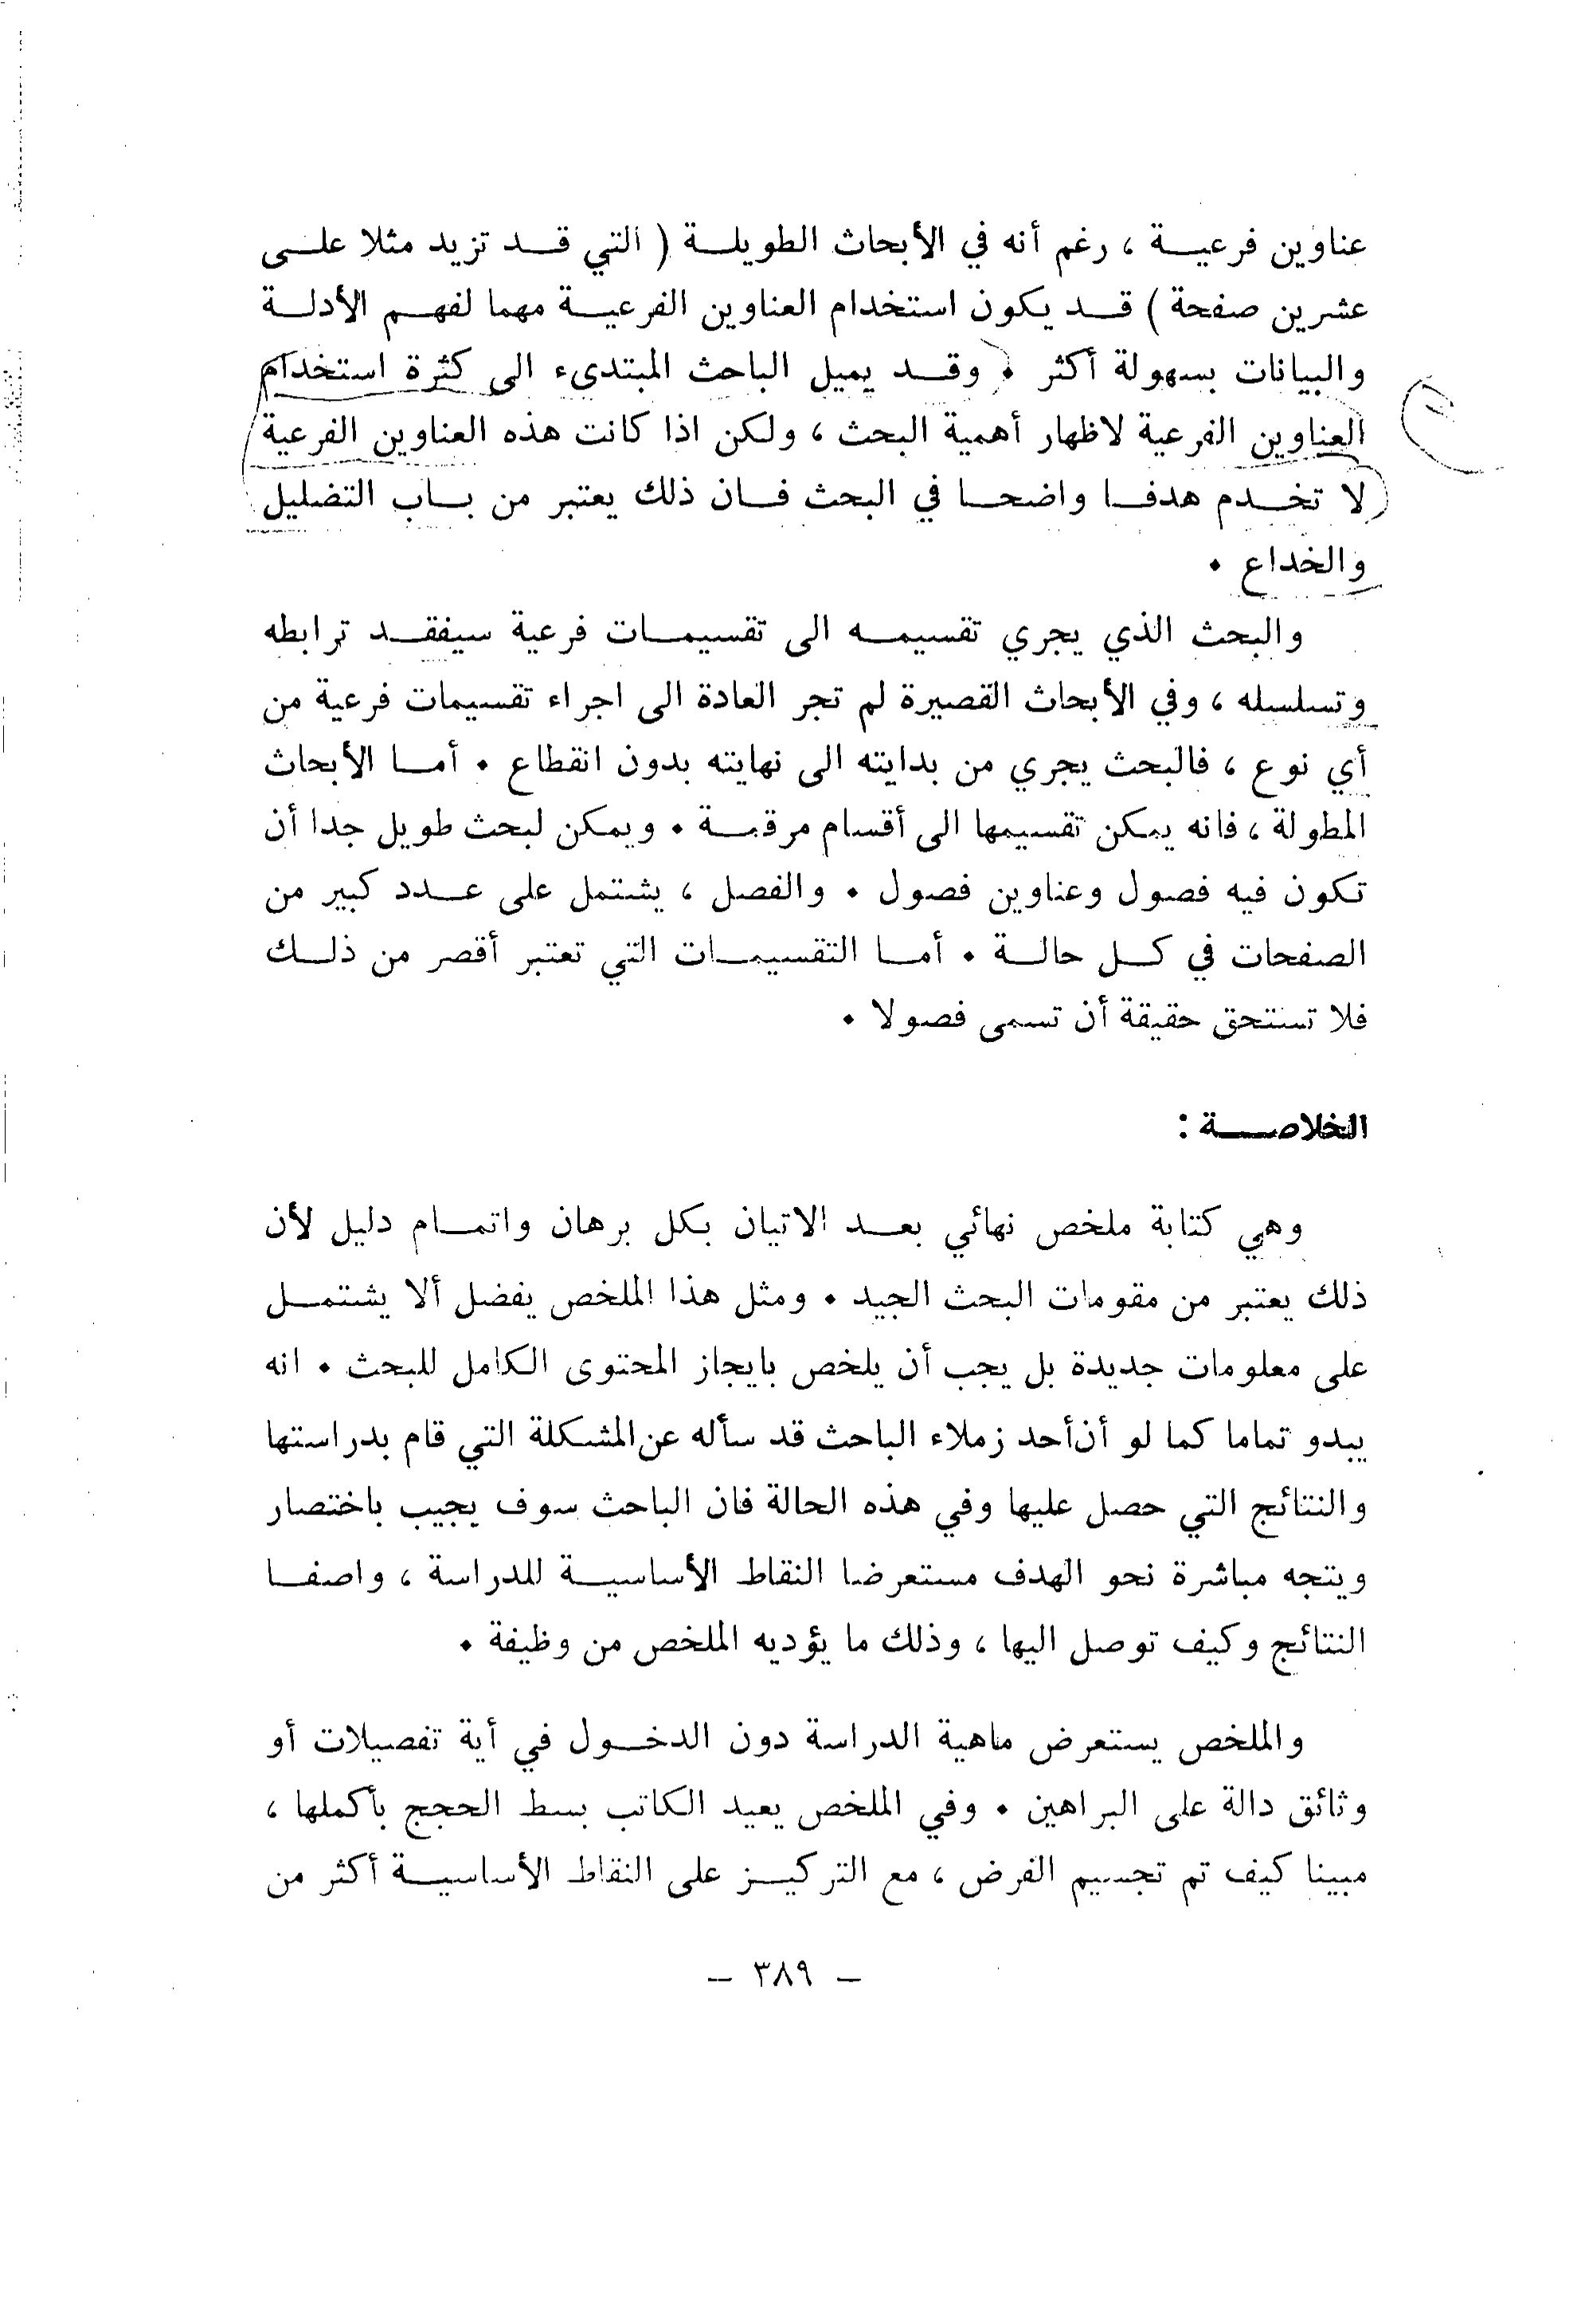 عناوين فرعيـــة ، رغم أنه في الأبحاث الطويلـــة ( التي قـــد تزيد مثلا علـــى
عشرين صفحة ) قـــد يكون استخدام العناوين الفرعيـــة مهما لفهـــم الأدلـــة
والبيانات بسهولة أكثر . وقـــد يميل الباحث المبتدىء الى كثرة استخدام
العناوين الفرعية لاظهار أهمية البحث ، ولكن اذا كانت هذه العناوين الفرعية
لا تخـــدم هدفـــا واضحـــا في البحث فـــان ذلك يعتبر من بـــاب التضليل
والخداع .
والبحث الذي يجري تقسيمـــه الى تقسيمـــات فرعية سيفقـــد ترابطه
وتسلسله ، وفي الأبحاث القصيرة لم تجر العادة الى اجراء تقسيمات فرعية من
أي نوع ، فالبحث يجري من بدايته الى نهايته بدون انقطاع . أمـــا الأبحاث
المطولة ، فانه يمكن تقسيمها الى أقسام مرقمـــة . ويمكن لبحث طويل جدا أن
تكون فيه فصول وعناوين فصول . والفصل ، يشتمل على عـــدد كبير من
الصفحات في كـــل حالـــة . أمـــا التقسيمـــات التي تعتبر أقصر من ذلـــك
فلا تستحق حقيقة أن تسمى فصولا .
الخلاصـــة :
وهي كتابة ملخص نهائي بعـــد الاتيان بكل برهان واتمـــام دليل لأن
ذلك يعتبر من مقومات البحث الجيد . ومثل هذا الملخص يفضل ألا يشتمـــل
على معلومات جديدة بل يجب أن يلخص بايجاز المحتوى الكامل للبحث . انه
يبدو تماما كما لو أن أحد زملاء الباحث قد سأله عن المشكلة التي قام بدراستها
والنتائج التي حصل عليها وفي هذه الحالة فان الباحث سوف يجيب باختصار
ويتجه مباشرة نحو الهدف مستعرضا النقاط الأساسيـــة للدراسة ، واصفـــا
النتائج وكيف توصل اليها ، وذلك ما يؤديه الملخص من وظيفة .
والملخص يستعرض ماهية الدراسة دون الدخـــول في أية تفصيلات أو
وثائق دالة على البراهين . وفي الملخص يعيد الكاتب بسط الحجج بأكملها ،
مبينا كيف تم تجسيم الفرض ، مع التركيـــز على النقاط الأساسيـــة أكثر من
– ٣٨٩ –